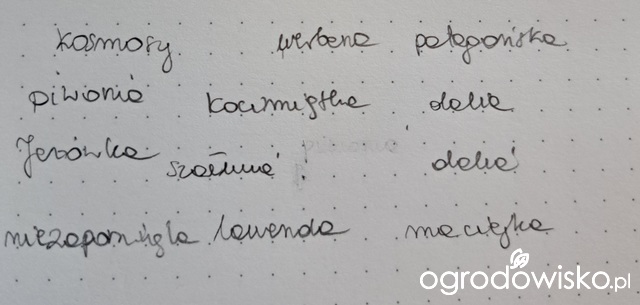 kosmosy werbena patagońska
piwonia kocimiętka dalia
Jeżówka szałwia dalia
niezapominajka lawenda maciejka
ogrodowisko.pl